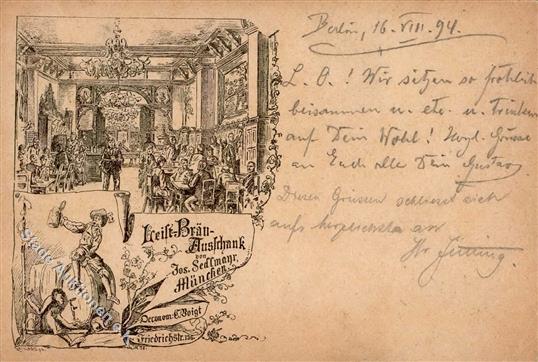 Berlin, 16. VIII. 94.
L. O.! Wir sitzen so fröhlich
beisammen u. etc. u. trinken
auf Dein Wohl! Herzl. Grüsse
an Euch alle Dein Gustav
Diesen Grüssen schliesst sich
aufs herzlichste an
Leist-Bräu-
Ausschank
von
Jos. Sedlmayr,
München
Oeconom: C. Voigt
Friedrichstr.